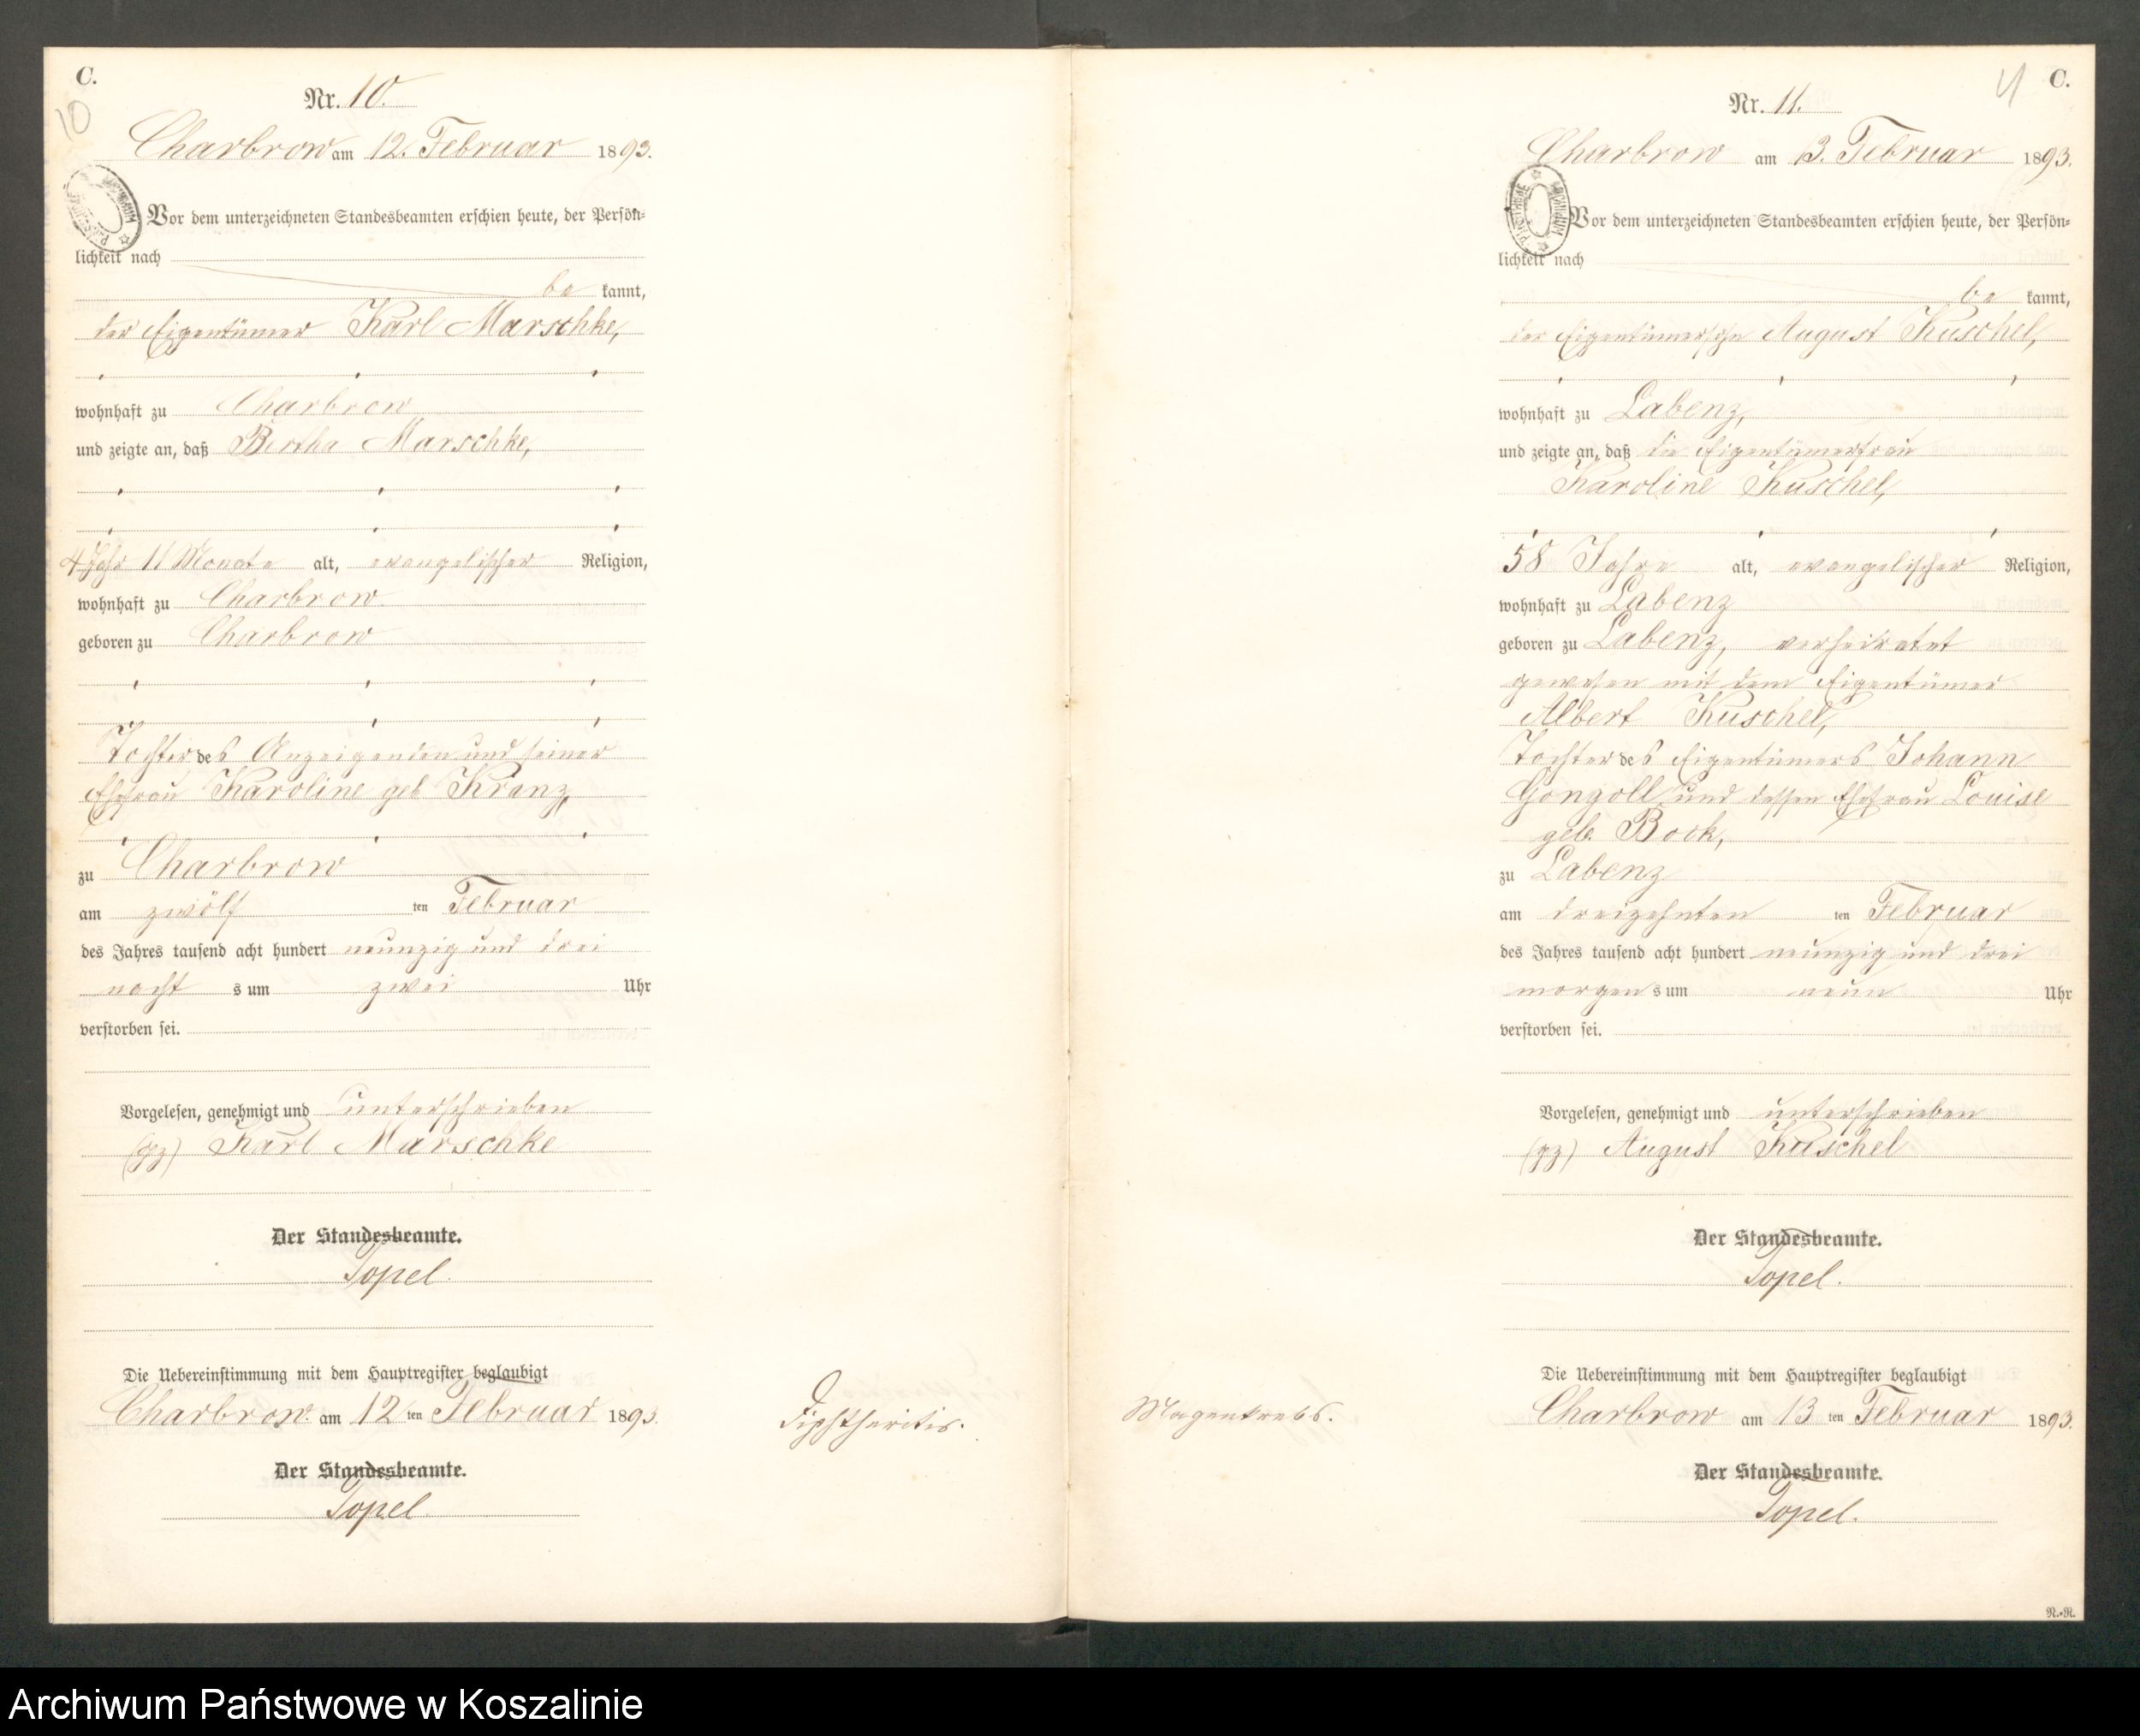 C.
10
Nr. 10.
Charbrow am 12. Februar 1893.
Vor dem unterzeichneten Standesbeamten erschien heute, der Persön-
lichkeit nach
be kannt,
der Eigentümer Karl Marschke,
wohnhaft zu Charbrow
und zeigte an, daß Bertha Marschke,
4 Jahr 11 Monate alt, evangelischer Religion,
wohnhaft zu Charbrow
geboren zu Charbrow
Tochter des Anzeigenden und seiner
Ehefrau Karoline geb. Kranz,
zu Charbrow
am zwölf ten Februar
des Jahres tausend acht hundert neunzig und drei
nacht s um zwei Uhr
verstorben sei.
Vorgelesen, genehmigt und unterschrieben
(gz) Karl Marschke
Der Standesbeamte.
Topel.
Die Uebereinstimmung mit dem Hauptregister beglaubigt
Charbrow. am 12 ten Februar 1893.
Der Standesbeamte.
Topel.
Diphtheritis.
C.
11
Nr. 11.
Charbrow am 13. Februar 1893.
Vor dem unterzeichneten Standesbeamten erschien heute, der Persön-
lichkeit nach
be kannt,
der Eigentümersohn August Kuschel,
wohnhaft zu Labenz,
und zeigte an, daß die Eigentümerfrau
Karoline Kuschel,
58 Jahre alt, evangelischer Religion,
wohnhaft zu Labenz
geboren zu Labenz, verheiratet
gewesen mit dem Eigentümer
Albert Kuschel,
Tochter des Eigentümers Johann
Gongoll und dessen Ehefrau Louise
geb. Bock,
zu Labenz
am dreizehnten ten Februar
des Jahres tausend acht hundert neunzig und drei
morgen s um neun Uhr
verstorben sei.
Vorgelesen, genehmigt und unterschrieben
(gz) August Kuschel
Der Standesbeamte.
Topel.
Die Uebereinstimmung mit dem Hauptregister beglaubigt
Charbrow am 13 ten Februar 1893.
Der Standesbeamte.
Topel.
Magenkrebs.
N.-N.
Archiwum Państwowe w Koszalinie